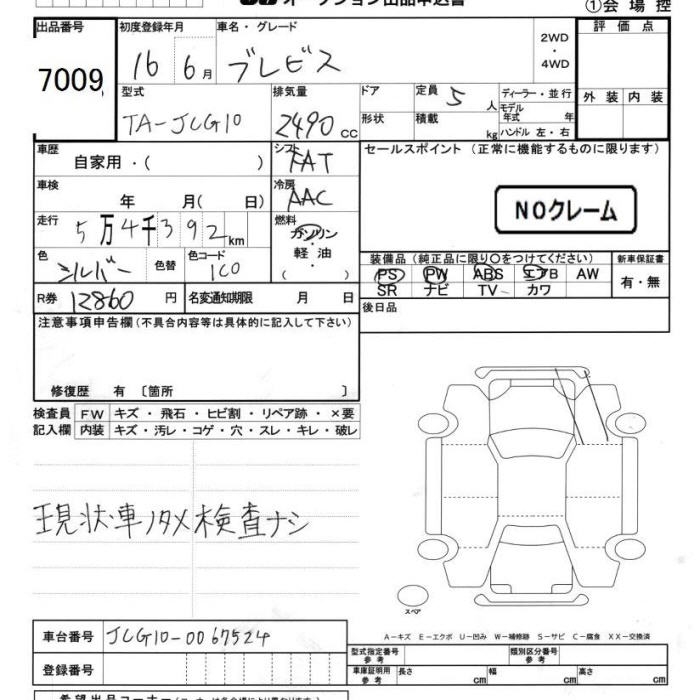 オークション出品申込書 ①会場控
出品番号 初度登録年月 車名・グレード 2WD・4WD 評価点
7009 16 6月 ブレビス
型式 排気量 ドア 定員 5人 ディーラー・並行 外装 内装
TA-JCG10 2490cc 形状 積載 kg モデル年式 年
ハンドル 左・右
車歴 自家用・( ) シフト FAT セールスポイント(正常に機能するものに限ります)
車検 年 月(日) 冷房 AAC NOクレーム
走行 5万4千392km 燃料 ガソリン・軽油・( )
色 シルバー 色替 色コード 1C0 装備品(純正品に限り○をつけてください) 新車保証書
PS PW ABS エアB AW 有・無
SR ナビ TV カワ
R券 12860円 名変通知期限 月 日 後日品
注意事項申告欄(不具合内容等は具体的に記入して下さい)
修復歴 有〔箇所 〕
検査員 FW キズ・飛石・ヒビ割・リペア跡・×要
記入欄 内装 キズ・汚レ・コゲ・穴・スレ・キレ・破レ
現状車ノタメ検査ナシ
スペア
A-キズ E-エクボ U-凹み W-補修跡 S-サビ C-腐食 XX-交換済
車台番号 JCG10-0067524
型式指定番号 参考 類別区分番号 参考
登録番号 車庫証明用 参考 長さ cm 幅 cm 高さ cm
希望出品コーナー